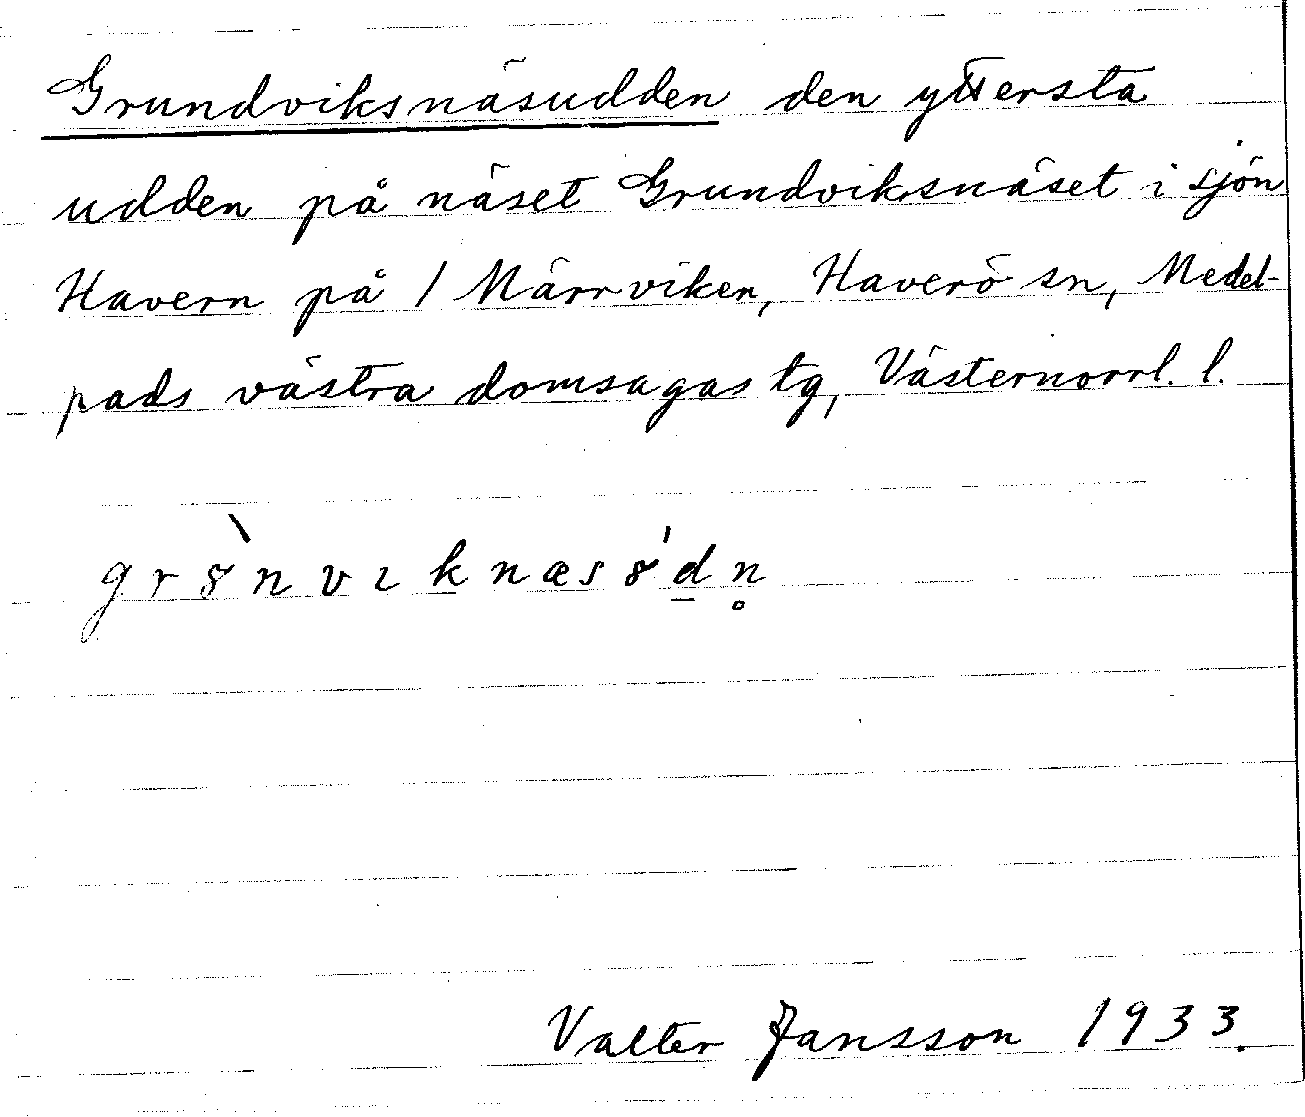 Grundviksnäsudden den yttersta
udden på näset Grundviksnäset i sjön
Havern på 1 Märrviken, Haverö sn, Medel-
pads västra domsagas tg, Västernorrl. l.
gr8̀nvıknæs8́d̲n̥
Valter Jansson 1933.